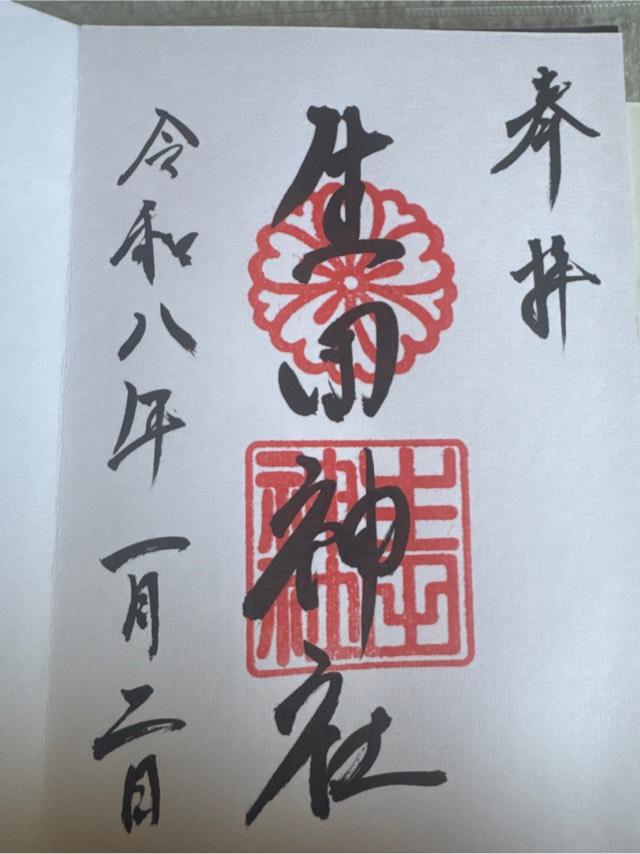 奉拝
生田神社
生田神社
令和八年一月二日